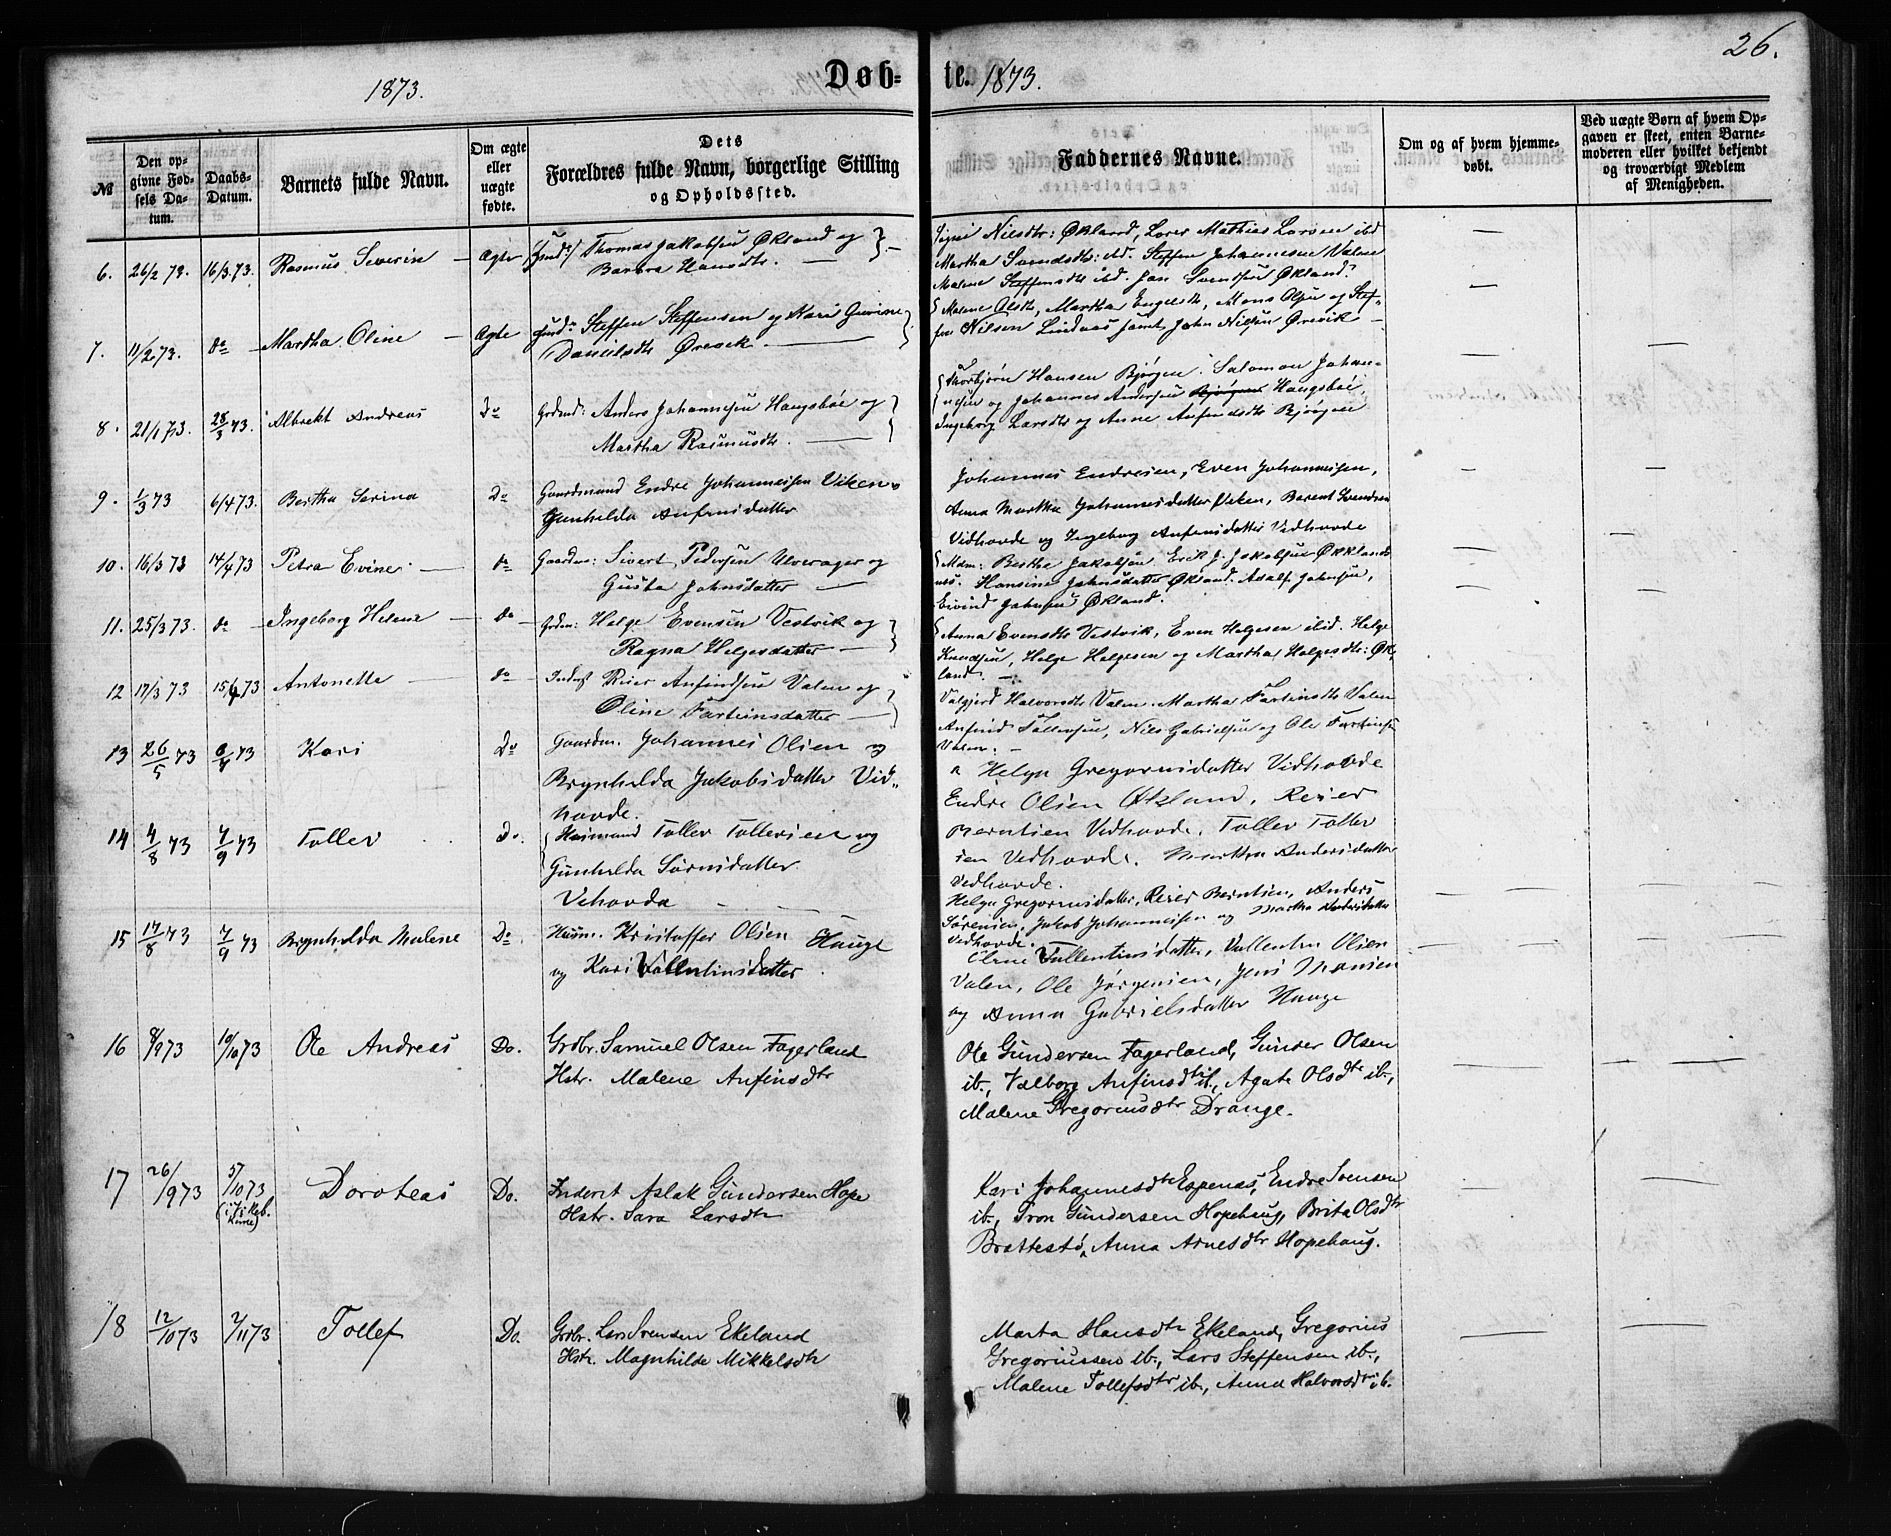 26.
1873.
Døb-
te. 1873.
№
Den opgivne Fødsels Datum.
Daabs-Datum.
Barnets fulde Navn.
Om ægte eller uægte fødte.
Dets
Forældres fulde Navn, borgerlige Stilling
og Opholdssted.
Faddernes Navne.
Om og af hvem hjemmedøbt.
Ved uægte Børn af hvem Opgaven er skeet, enten Barnemoderen eller hvilket bekjendt og troværdigt Medlem af Menigheden.
6. 26/2 73. 16/3.73. Rasmus Severin — Ægte Thomas Jakobsen Økland og
Barbra Hansdtr. —
Nilsdtr: Økland, Mathias Larsen ibd
Martha Svendsdtr: ibd. Steffen Johannesen Valene
Malene Steffensdtr ibd. Jan Svendsen Økland.
7. 11/2 73. do Martha Oline — Ægte Steffen Steffensen og Kari Gurine
Danielsdtr Ørevik. —
Malene Olsdtr, Martha Engelsdtr, Mons Olsen og Stef-
fen Nilsen Lindnæs samt John Nilsen Ørevik —
8. 21/1 73. 23/3 73. Albrekt Andreas Do Grdmd: Anders Johannesen Haugsbøe og
Martha Rasmusdtr. —
Thorbjørn Hansen Bjørgen. Salomon Johan-
nesen og Johannes Andersen Bjørgen Haugsbøe,
Ingeborg Larsdtr og Anne Anfindsdtr Bjørgen
9. 1/3 73 6/4 73. Bertha Serina Do Gaardmand Endre Johannessen Viken og
Gunhilda Anfinsdatter
Johannes Endresen, Even Johannessen,
Anna Martha Johannesdatter Viken, Barent Svendsen
Vidhovde og Ingeborg Anfinsdatter Vidhovde
10. 16/3 73 14/4 73 Petra Evine. — do Gaardm: Sivert Pedersen Ulverager og
Gusta Johnsdatter —
Mdm: Bertha Jakobsen, Erik J. Jakobsen Øklands
næs. Hansine Johnsdatter Økland. Adolf Johnsen,
Eivind Johnsen Økland.
11. 25/3 73. do Ingeborg Helene — do Grdm: Helge Evensen Vestvik og
Ragna Helgesdatter —
Anna Evensdtr Vestvik, Even Helgesen ibid. Helge
Knudsen, Helge Helgesen og Martha Helgesdtr: Øk-
land. —
12 17/3 73 15/6 73 Antonette — do Inderst Reier Anfindsen Valen og
Oline Farteinsdatter —
Valgjerd Halvorsdtr Valen. Martha Farteinsdtr Valen
Anfind Tollefsen, Nils Gabrielsen og Ole Farteinsen
Valen. —
13 26/5 73 73 Kari Do Gaardm. Johannes Olsen og
Brynhilda Jakobsdatter Vid-
hovde.
Helga Gregoriusdatter Vidhovde
Endre Olsen Økland, Reier
Berntsen Vedhovde, Tollev Tollev
sen Vedhovde. Martha Andersdatter
Vedhovde.
14 4/8 73 7/9 73 Tollev Do. Husmand Tollev Tollevsen og
Gunhilda Sørensdatter
Vehovda
Helga Gregoriusdatter, Reier Berntsen, Anders
Sørensen, Jakob Johannessen og Martha Andersdatter
Vedhovde.
15 17/8 73 7/9 73 Brynhilda Malene Do. Husm. Kristoffer Olsen Hauge
og Kari Vallentinsdatter.
Vallentinsdatter, Vallentin Olsen
Valen, Ole Jørgensen, Jens Monsen
og Anna Gabrielsdatter Hauge
16 8/9 73 19/10 73 Ole Andreas Do. Grdbr. Samuel Olsen Fagerland
Hstr. Malene Anfinsdtr
Ole Gundersen Fagerland, Gunder Olsen
ib., Valborg Anfinsdtr ib., Agate Olsdtr ib.,
Malene Gregoriusdtr Drange.
17 26/9 73 5/10 73 Doroteas Do. Inderst Aslak Gundersen Hope
Hstr. Sara Larsdtr
Kari Johannesdtr Espenæs, Endre Svensen
ib., Tron Gundersen Hopehaug, Brita Olsdtr
Brattestø, Anna Arnesdtr Hopehaug.
18 12/10 73 2/11 73 Tollef Do. Grdbr. Lars Svensen Ekeland
Hstr. Magnhilde Mikkelsdtr
Marta Hansdtr Ekeland, Gregorius
Gregoriussen ib., Lars Steffensen ib.,
Malene Tollefsdtr ib., Anna Halvorsdtr ib.